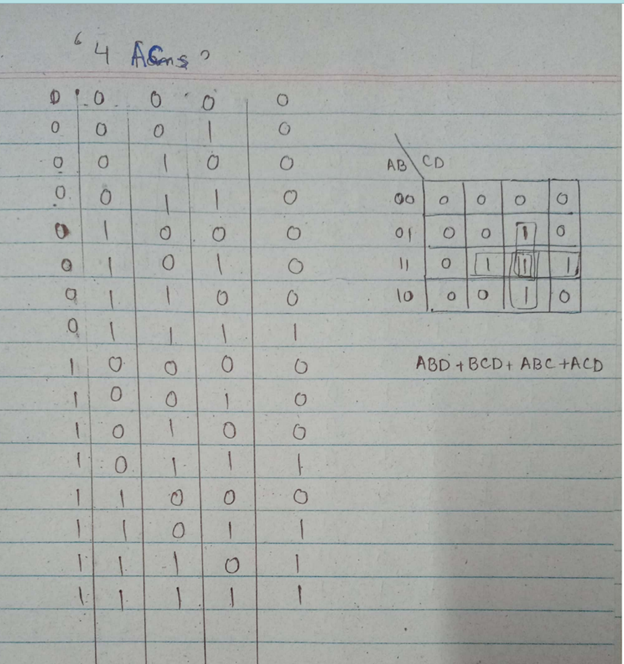 "4 Acns"
0 0 0 0 0
0 0 0 1 0
0 0 1 0 0
0 0 1 1 0
0 1 0 0 0
0 1 0 1 0
0 1 1 0 0
0 1 1 1 1
1 0 0 0 0
1 0 0 1 0
1 0 1 0 0
1 0 1 1 1
1 1 0 0 0
1 1 0 1 1
1 1 1 0 1
1 1 1 1 1
AB \ CD
00 0 0 0 0
01 0 0 1 0
11 0 1 1 1
10 0 0 1 0
ABD + BCD + ABC + ACD